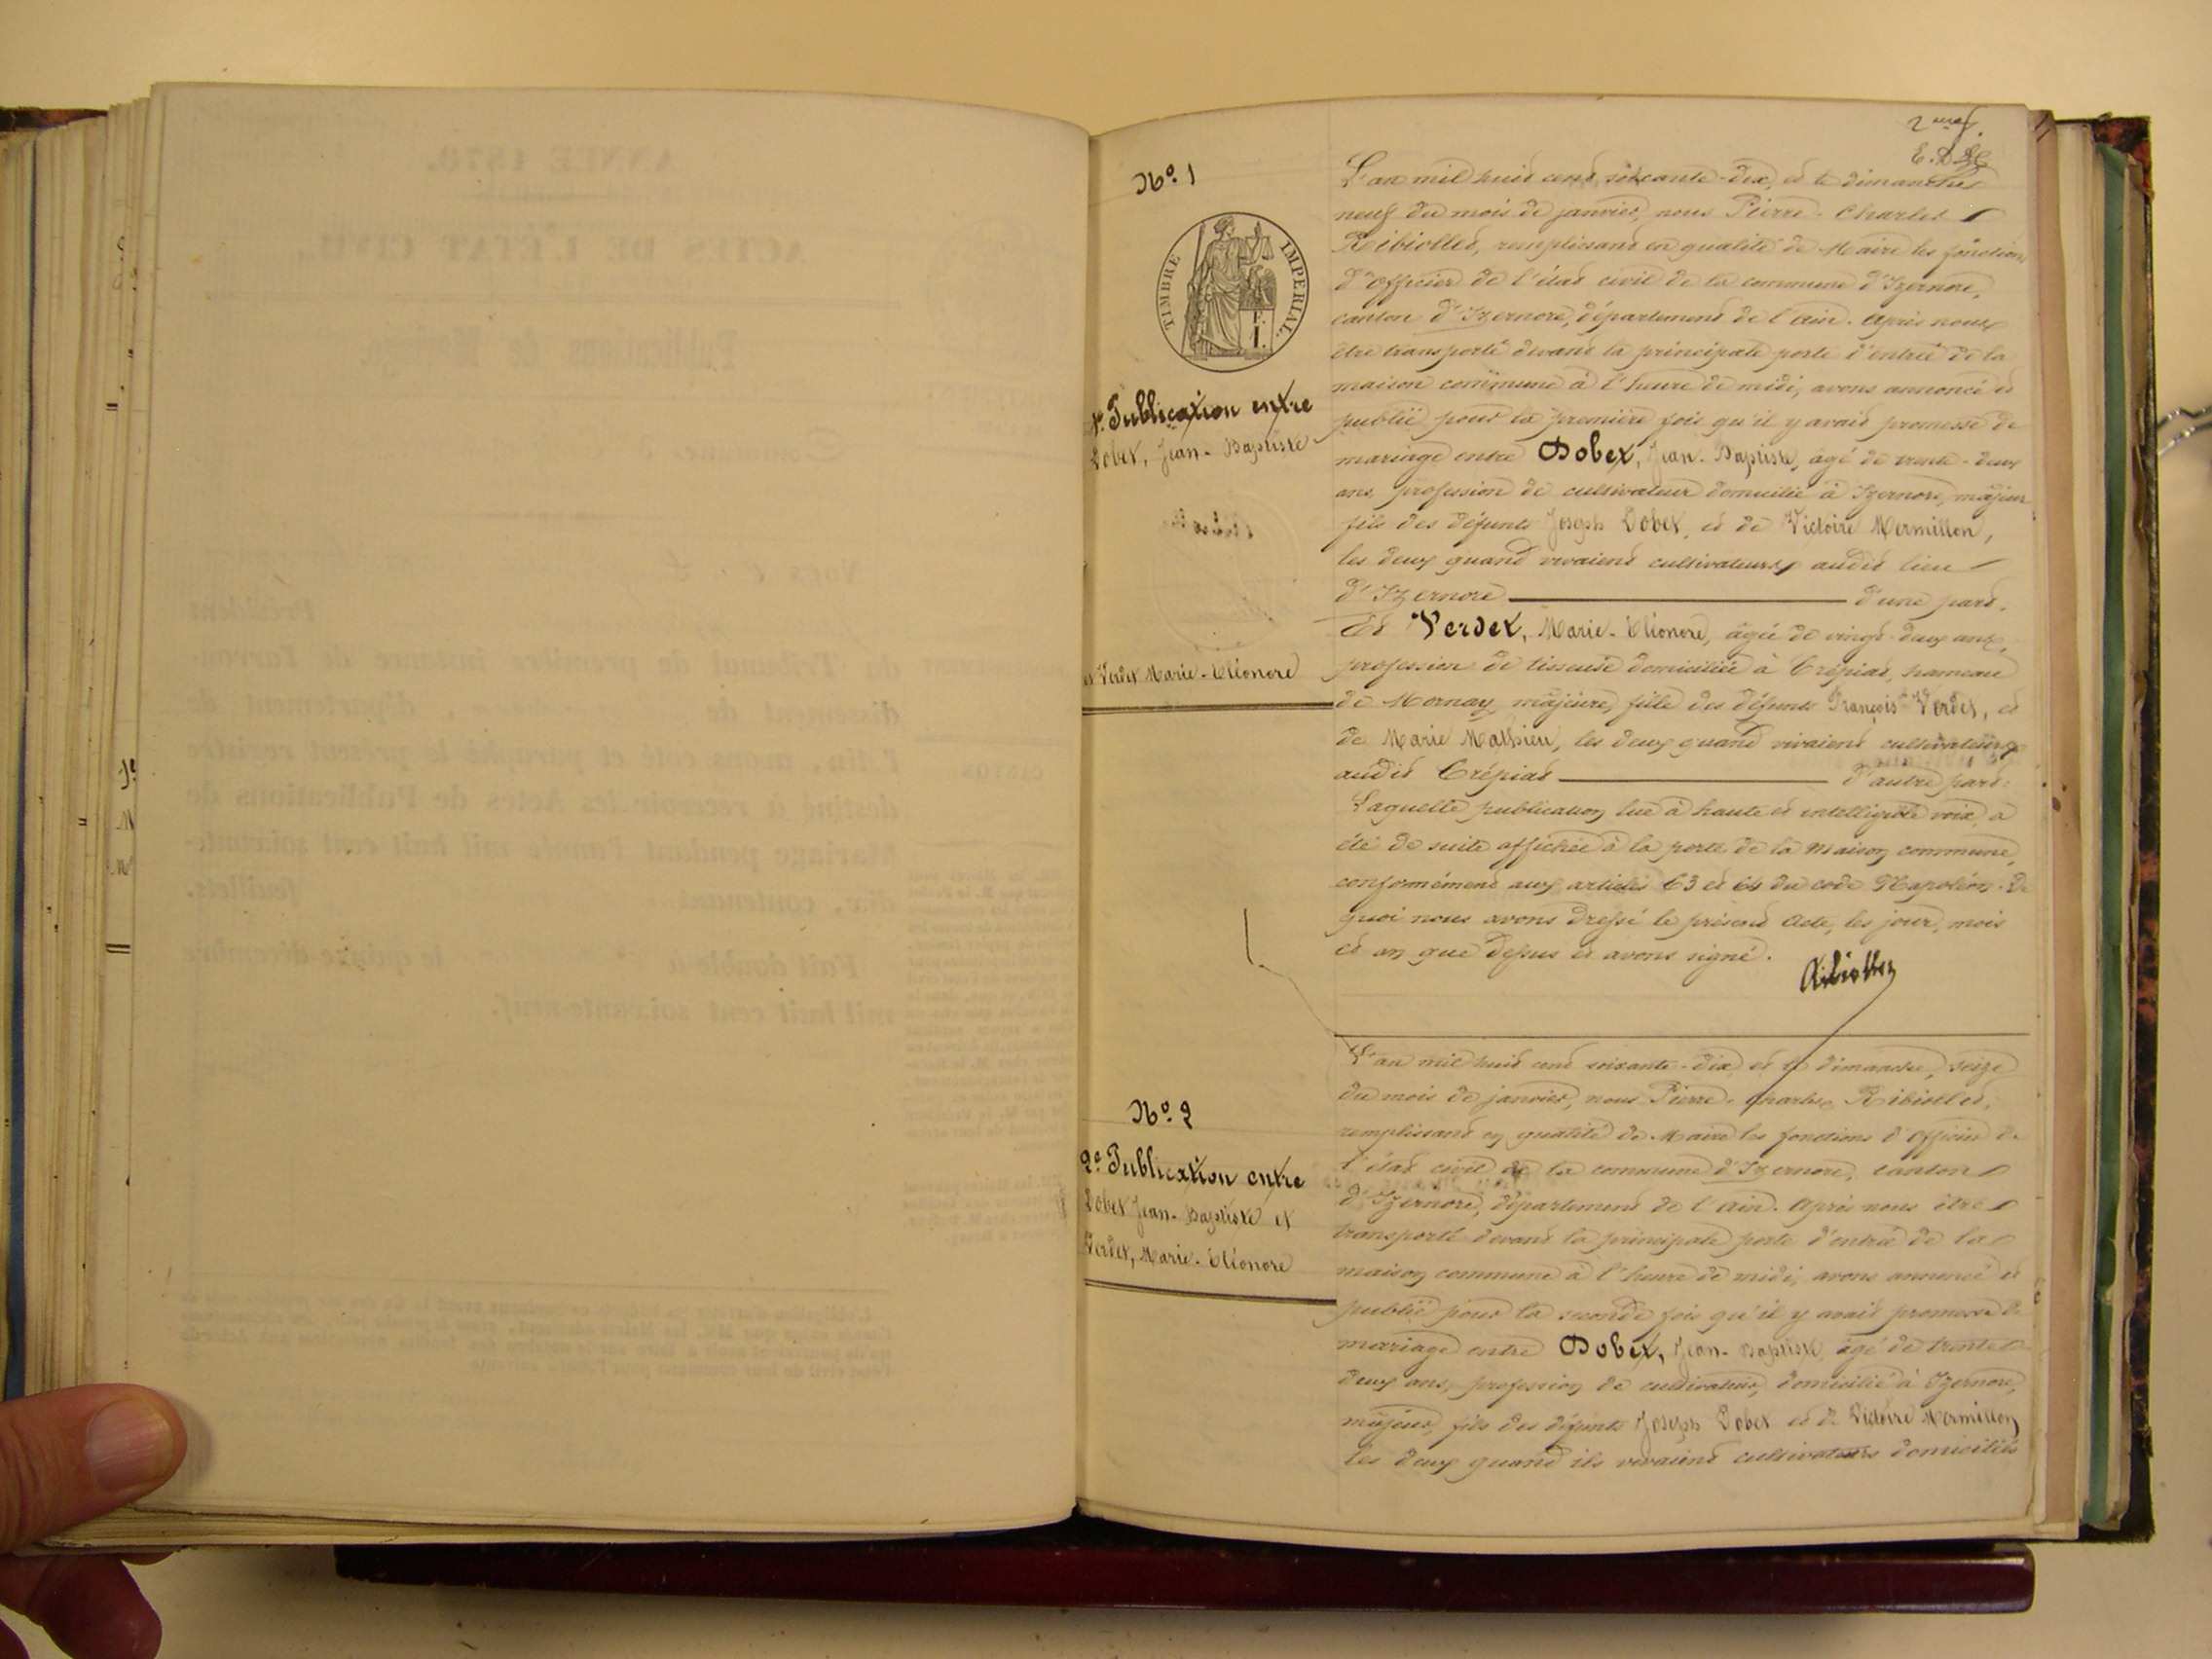 2me f.
Nº. 1
TIMBRE IMPERIAL.
E.
I.
1e. Publication entre
Dobet, Jean-Baptiste
et Verdet Marie-Eléonore
L'an mil huit cent soixante-dix, et le dimanche
neuf du mois de janvier, nous Pierre-Charles
Ribiollet, remplissant en qualité de Maire les fonctions
d'officier de l'état civil de la commune d'Izernore,
canton d'Izernore, département de l'Ain. Après nous
être transporté devant la principale porte d'entrée de la
maison commune à l'heure de midi, avons annoncé et
publié pour la première fois qu'il y avait promesse de
mariage entre Dobet, Jean-Baptiste, âgé de trente-deux
ans, profession de cultivateur domicilié à Izernore, majeur,
fils des défunts Joseph Dobet, et de Victoire Mermillon,
les deux quand vivaient cultivateurs audit lieu
d'Izernore d'une part.
Et Verdet, Marie-Eléonore, âgée de vingt-deux ans,
profession de tisseuse domiciliée à Crépiat, hameau
de Mornay, majeure, fille des défunts François Verdet, et
de Marie Mathieu, les deux quand vivaient cultivateurs
audit Crépiat d'autre part:
Laquelle publication lue à haute et intelligible voix, a
été de suite affichée à la porte de la maison commune,
conformément aux articles 63 et 64 du code Napoléon. De
quoi nous avons dressé le présent acte, les jour, mois
et an que dessus et avons signé.
Ribiollet
Nº. 2
2e. Publication entre
Dobet Jean-Baptiste et
Verdet, Marie-Eléonore
L'an mil huit cent soixante-dix et le dimanche, seize
du mois de janvier, nous Pierre-Charles Ribiollet,
remplissant en qualité de Maire les fonctions d'officier de
l'état civil de la commune d'Izernore, canton
d'Izernore, département de l'Ain. Après nous être
transporté devant la principale porte d'entrée de la
maison commune à l'heure de midi, avons annoncé et
publié pour la seconde fois qu'il y avait promesse de
mariage entre Dobet, Jean-Baptiste, âgé de trente
deux ans, profession de cultivateur, domicilié à Izernore,
majeur, fils des défunts Joseph Dobet et de Victoire Mermillon
les deux quand ils vivaient cultivateurs domiciliés